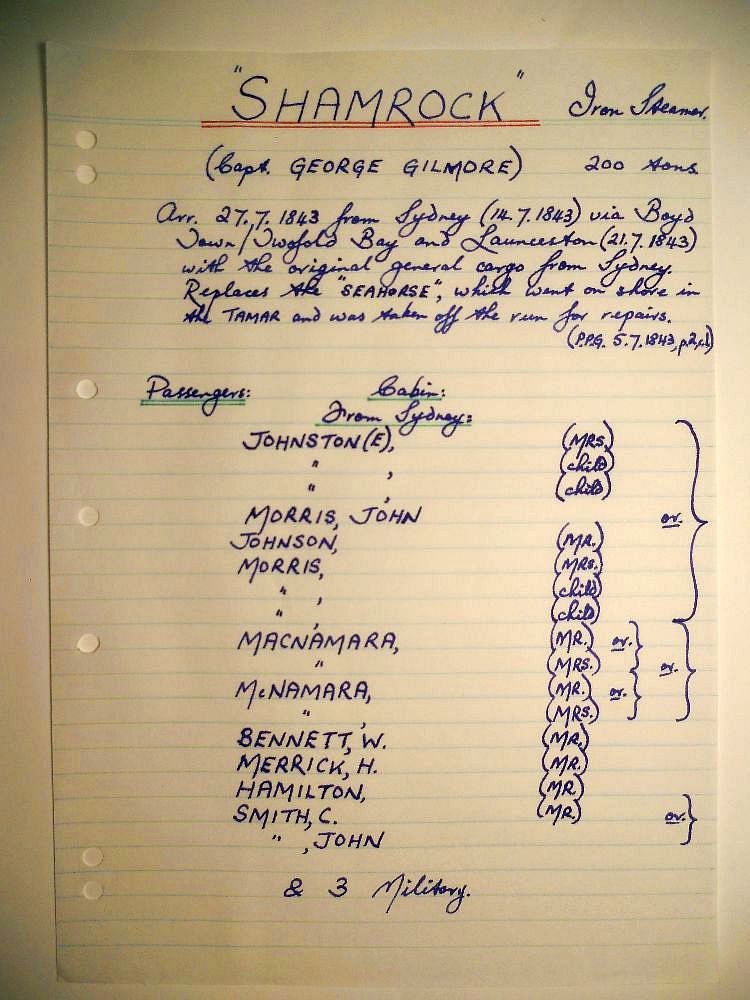 "SHAMROCK" Iron Steamer.
(Capt. GEORGE GILMORE) 200 tons.
Arr. 27.7.1843 from Sydney (14.7.1843) via Boyd
Town/Twofold Bay and Launceston (21.7.1843)
with the original general cargo from Sydney.
Replaces the "SEAHORSE", which went on shore in
the TAMAR and was taken off the run for repairs.
(P.P.G. 5.7.1843, p.2,c.1)
Passengers: Cabin:
From Sydney:
JOHNSTON (E), (MRS.)
" , (child)
" , (child)
MORRIS, JOHN or.
JOHNSON, (MR.)
MORRIS, (MRS.)
" , (child)
" , (child)
MACNAMARA, (MR.) or.
" (MRS.) or.
McNAMARA, (MR.) or.
" , (MRS.)
BENNETT, W. (MR.)
MERRICK, H. (MR.)
HAMILTON, (MR.)
SMITH, C. (MR.) or.
" , JOHN
& 3 Military.